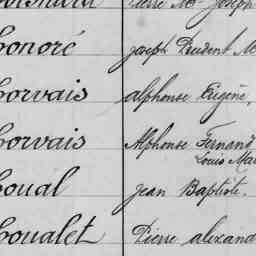 Pierre Mie Joseph
Honoré Joseph Prudent M
Horvais Alphonse Eugène,
Horvais Alphonse Fernand
Louis Mar
Houal Jean Baptiste.
Houalet Pierre alexand